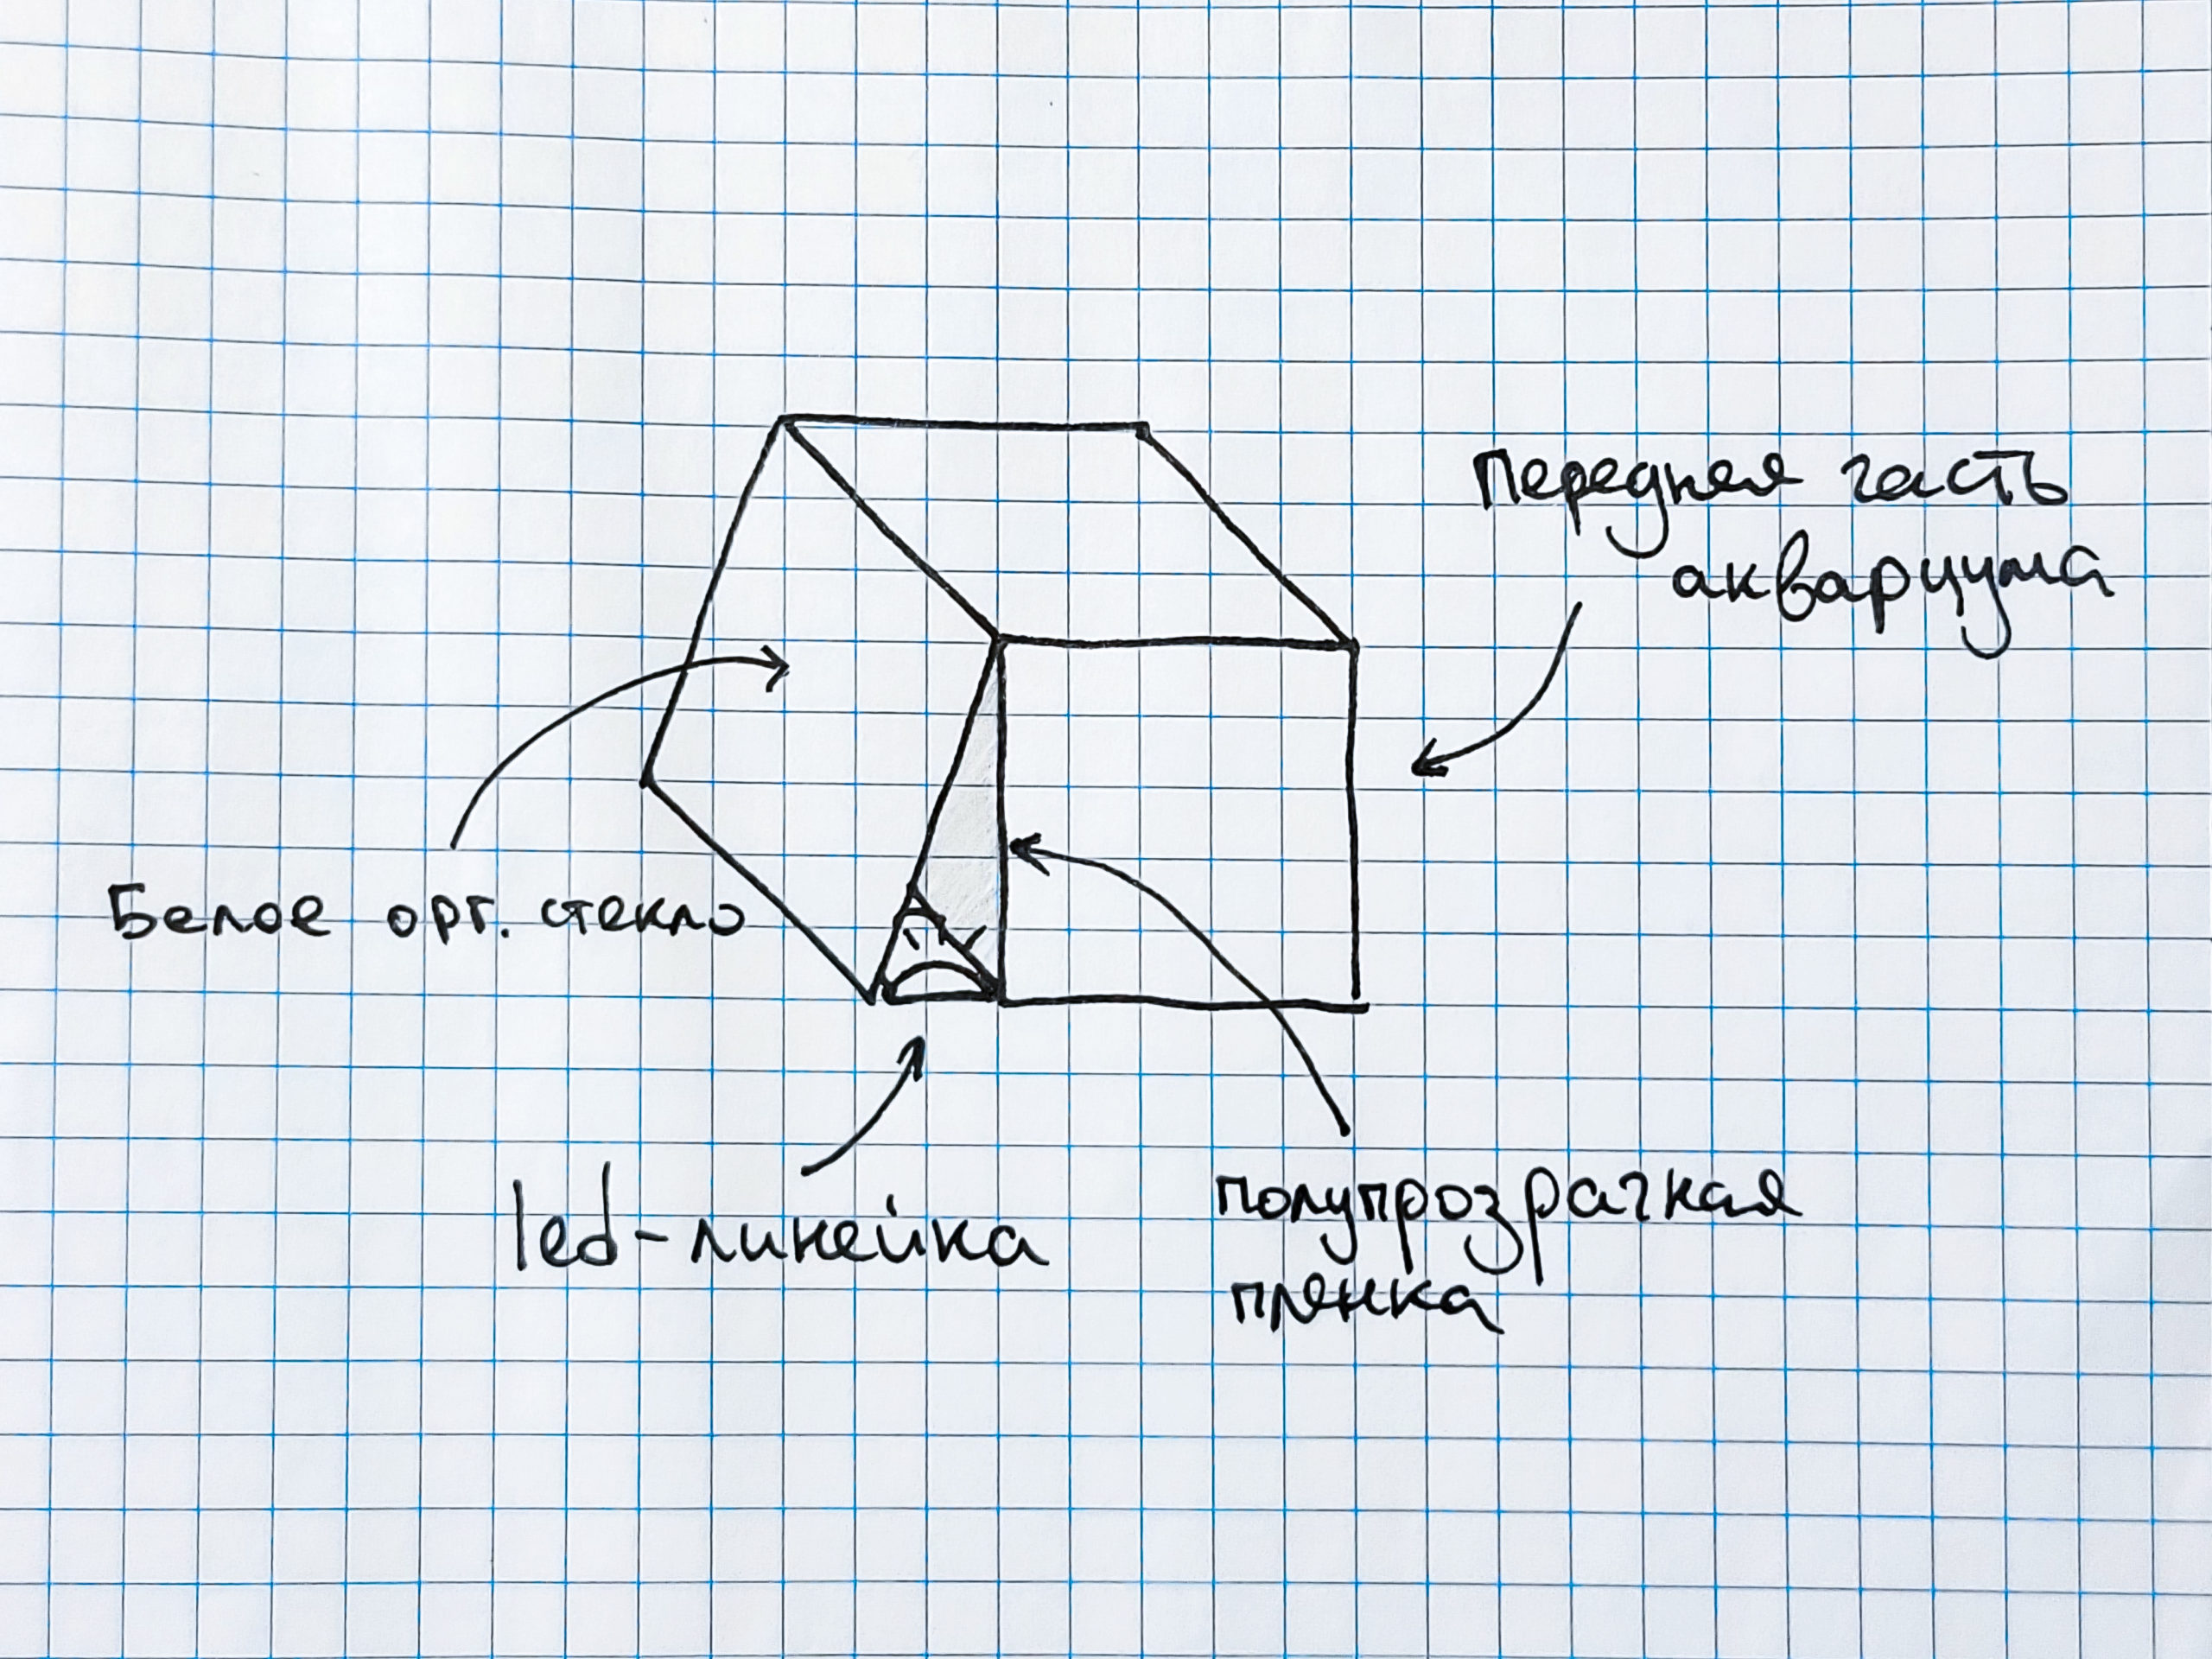 Передняя часть
аквариума
Белое орг. стекло
led-линейка
полупрозрачная
пленка